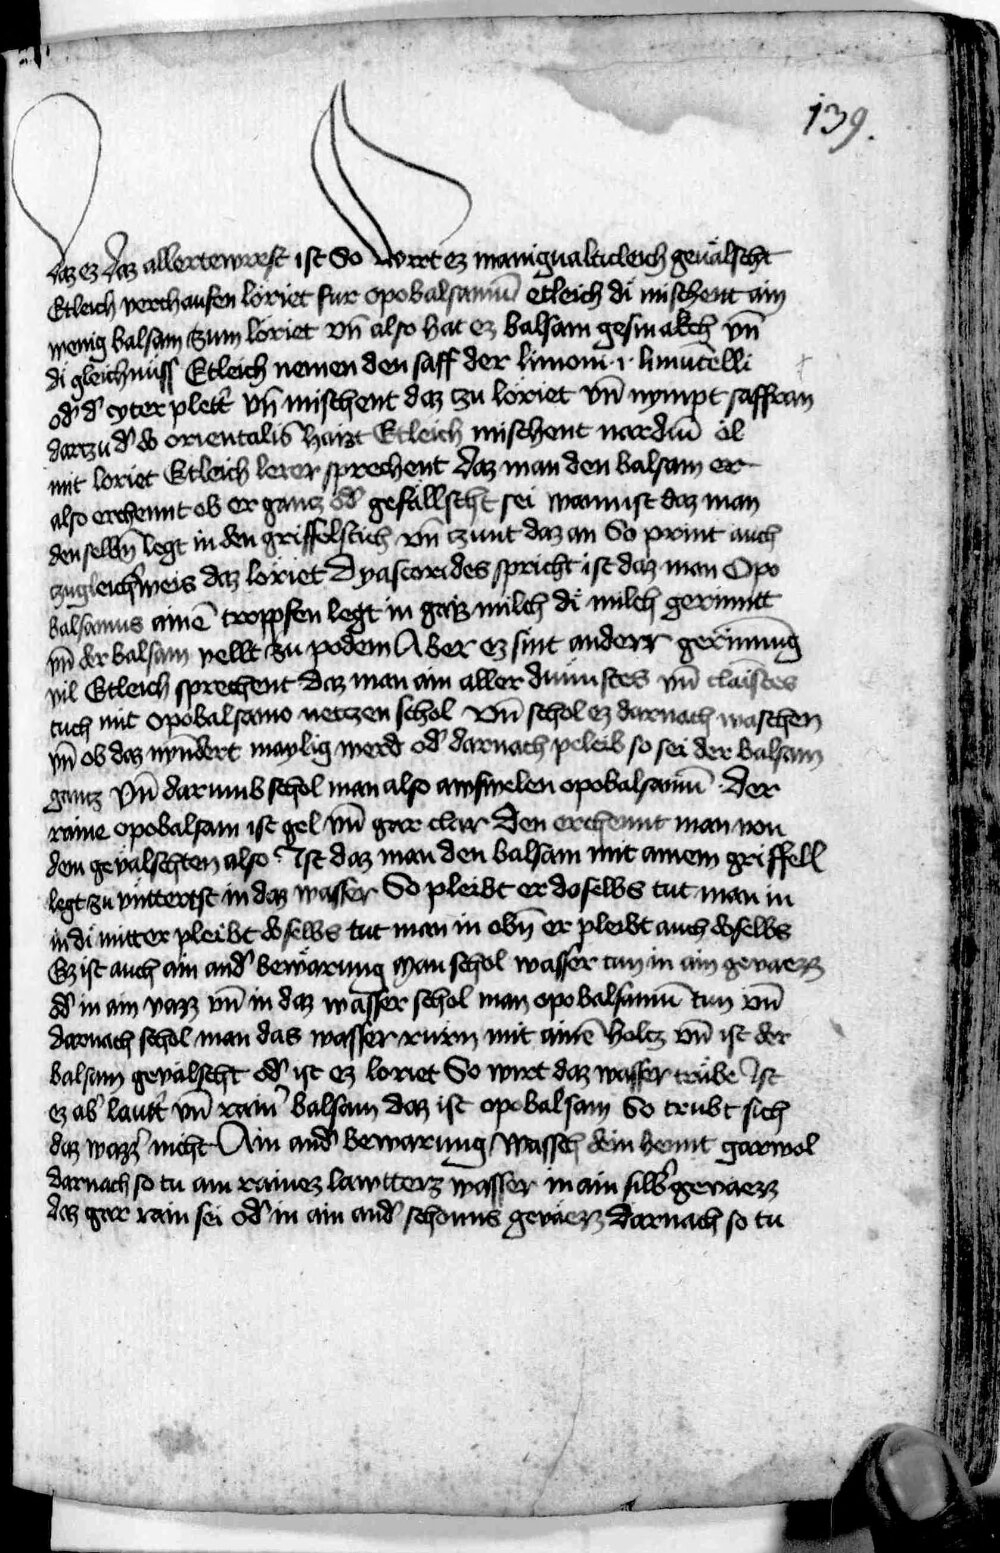 139.
daz ez daz allertewrest ist So wirt ez manigualticleich geuälscht
Etleich verchaufen loriet fur opobalsamū etleich di mischent ain
wenig balsam zum loriet vn̄ also hat ez balsam gesmakch vn̄
di gleichnüss Etleich nemen den saff der limoni ·i· limūcelli
od' d' cyter plett' vn̄ mischent daz tzu loriet vn̄ nympt saffran
dartzu d' do orientalis haizt Etleich mischent nardinū öl
mit loriet Etleich lerer sprechent daz man den balsam er
also erchennt ob er gantz od' gefällscht sei wann ist daz man
den selbn̄ legt in den griffelstich vn̄ tzunt daz an So print auch
tzugleich'weis daz loriet Dyascorides spricht ist daz man Opo
balsamus ainē troppfen legt in gaiz milch di milch gerinnt
vn̄ der balsam vellt zu podem Aber ez sint anderr gerinnūg
vil Etleich sprechent Daz man ain aller dunnistes vn̄ clainstes
tuch mit opobalsamo netzen schol vn̄ schol ez darnach waschen
vn̄ ob daz nyndert maylig werd od' darnach peleib so sei der balsam
gantz vn̄ darumb schol man also awswelen opobalsamū · Der
raine opobalsam ist gel vn̄ gar clar Den erchennt man von
dem geuälschten also · Ist daz man den balsam mit ainem griffell
legt zu vnttertst in daz wasser So pleibt er doselbs tut man in
in di mitt er pleibt doselbs tut man in obn̄ er pleibt auch doselbs
Ez ist auch ain and' bewärung Man schol wasser tun in ain geuaezz
od' in ain vazz vn̄ in daz wasser schol man opobalsamū tun vn̄
darnach schol man das wasser rürn mit ainē holtz vn̄ ist der
balsam geuälscht od' ist ez loriet So wirt daz wasser trübe Ist
ez ab' lautt' vn̄ rain' balsam daz ist opobalsam So trubt sich
daz wazz' nicht Ain and' bewarung Wassch dein hennt garwol
darnach so tu ain rainez lawtterz wasser in ain silb' geuaezz
daz gar rain sei od' in ain and' schonns geuaezz Darnach so tu